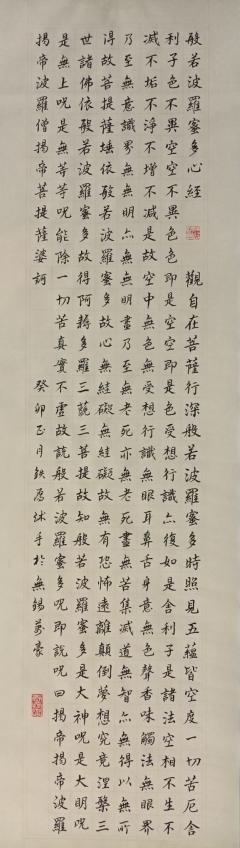 般若波羅蜜多心經 觀自在菩薩行深般若波羅蜜多時照見五蘊皆空度一切苦厄舍
利子色不異空空不異色色即是空空即是色受想行識亦復如是舍利子是諸法空相不生不
滅不垢不淨不增不減是故空中無色無受想行識無眼耳鼻舌身意無色聲香味觸法無眼界
乃至無意識界無無明亦無無明盡乃至無老死亦無老死盡無苦集滅道無智亦無得以無所
得故菩提薩埵依般若波羅蜜多故心無絓礙無絓礙故無有恐怖遠離顛倒夢想究竟涅槃三
世諸佛依般若波羅蜜多故得阿耨多羅三藐三菩提故知般若波羅蜜多是大神呪是大明呪
是無上呪是無等等呪能除一切苦真實不虛故說般若波羅蜜多呪即說呪曰揭帝揭帝波羅
揭帝波羅僧揭帝菩提薩婆訶 癸卯正月沐手於無錫萬豪